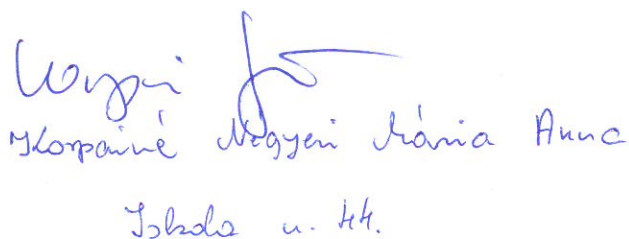 Korpainé Negyeri Mária Anna
Iskola u. 44.